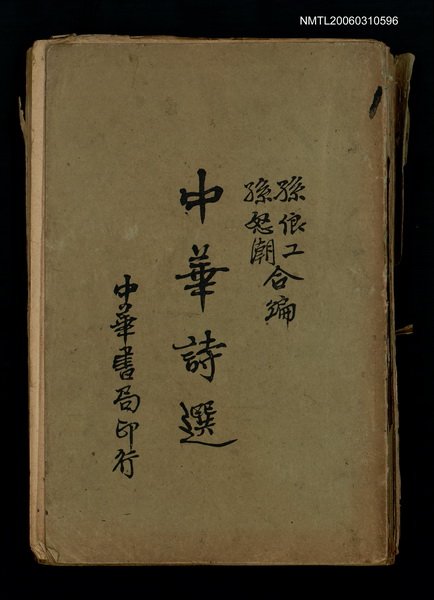 NMTL20060310596
孫俍工
孫怒潮
合編
中華詩選
中華書局印行